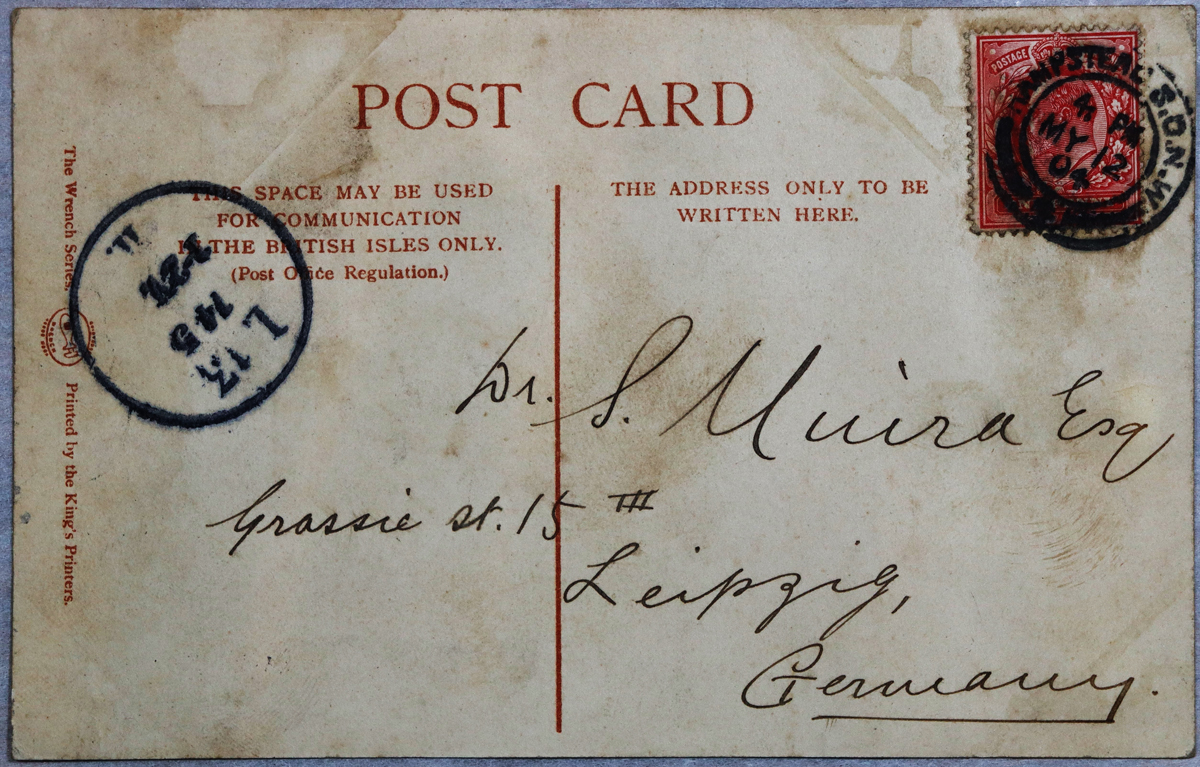 POST CARD
THIS SPACE MAY BE USED
FOR COMMUNICATION
IN THE BRITISH ISLES ONLY.
(Post Office Regulation.)
THE ADDRESS ONLY TO BE
WRITTEN HERE.
POSTAGE
HAMPSTEAD S.O.N.W.
4 PM
MY 12
04
The Wrench Series.
Printed by the King's Printers.
L 13
14 5
1-2N
Dr. S. Miura Esq
Grassie st. 15 III
Leipzig,
Germany.